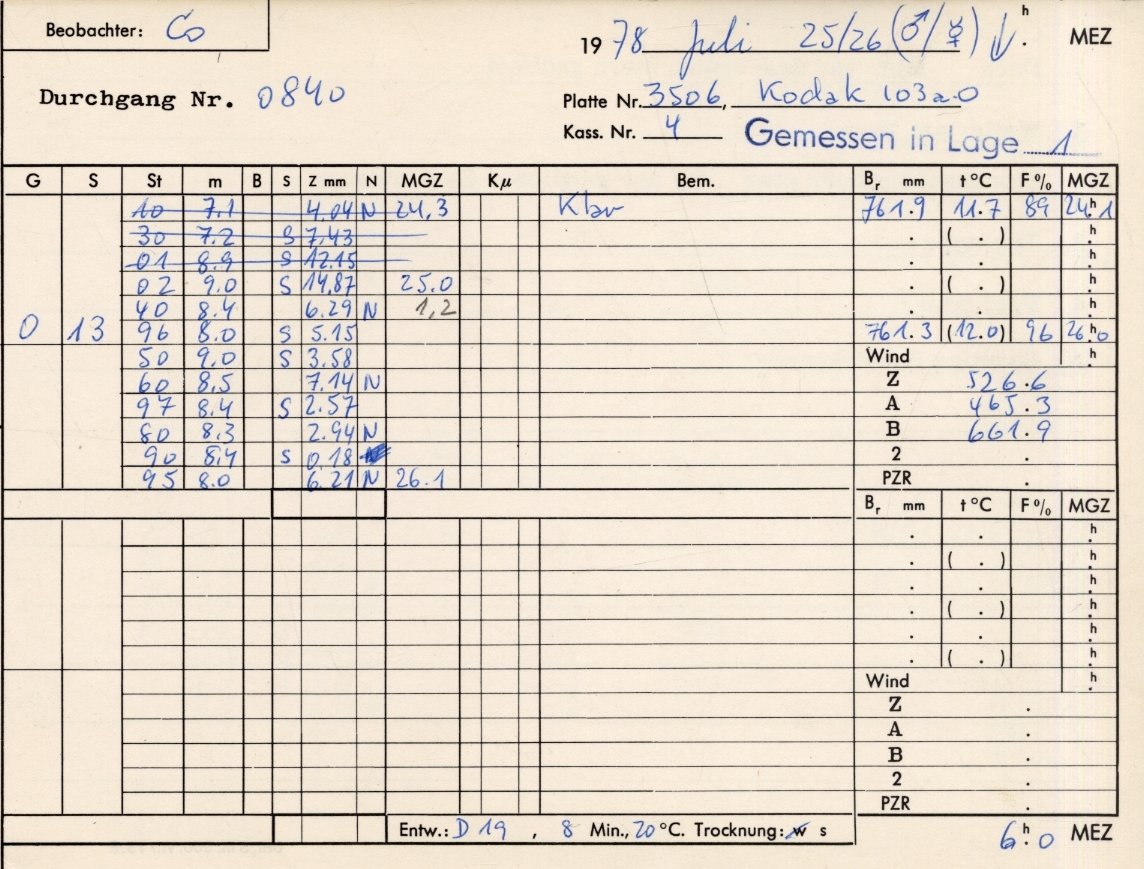 Beobachter: Co
1978 Juli 25/26 (♂/☿) h . MEZ
Durchgang Nr. 0840
Platte Nr. 3506, Kodak 103a-O
Kass. Nr. 4 Gemessen in Lage 1
G S St m B S Z mm N MGZ Kμ Bem. Br mm t °C F % MGZ
10 7.1 4.04 N 24,3 Klar 761.9 11.7 89 24h.1
30 7.2 S 7.43 . ( . ) h.
01 8.9 S 12.15 . . h.
02 9.0 S 14,87 25.0 . ( . ) h.
40 8.4 6.29 N 1,2 . . h.
0 13 96 8.0 S 5.15 761.3 (12.0) 96 26h.0
50 9.0 S 3.58 Wind h.
60 8.5 7.14 N Z 526.6
97 8.4 S 2.57 A 465.3
80 8.3 2.94 N B 661.9
90 8.4 S 0.18 2 .
95 8.0 6.21 N 26.1 PZR .
Br mm t °C F % MGZ
. . h.
. ( . ) h.
. . h.
. ( . ) h.
. . h.
. ( . ) h.
Wind h.
Z .
A .
B .
2 .
PZR .
Entw.: D 19 , 8 Min., 20 °C. Trocknung: w s
6h.0 MEZ